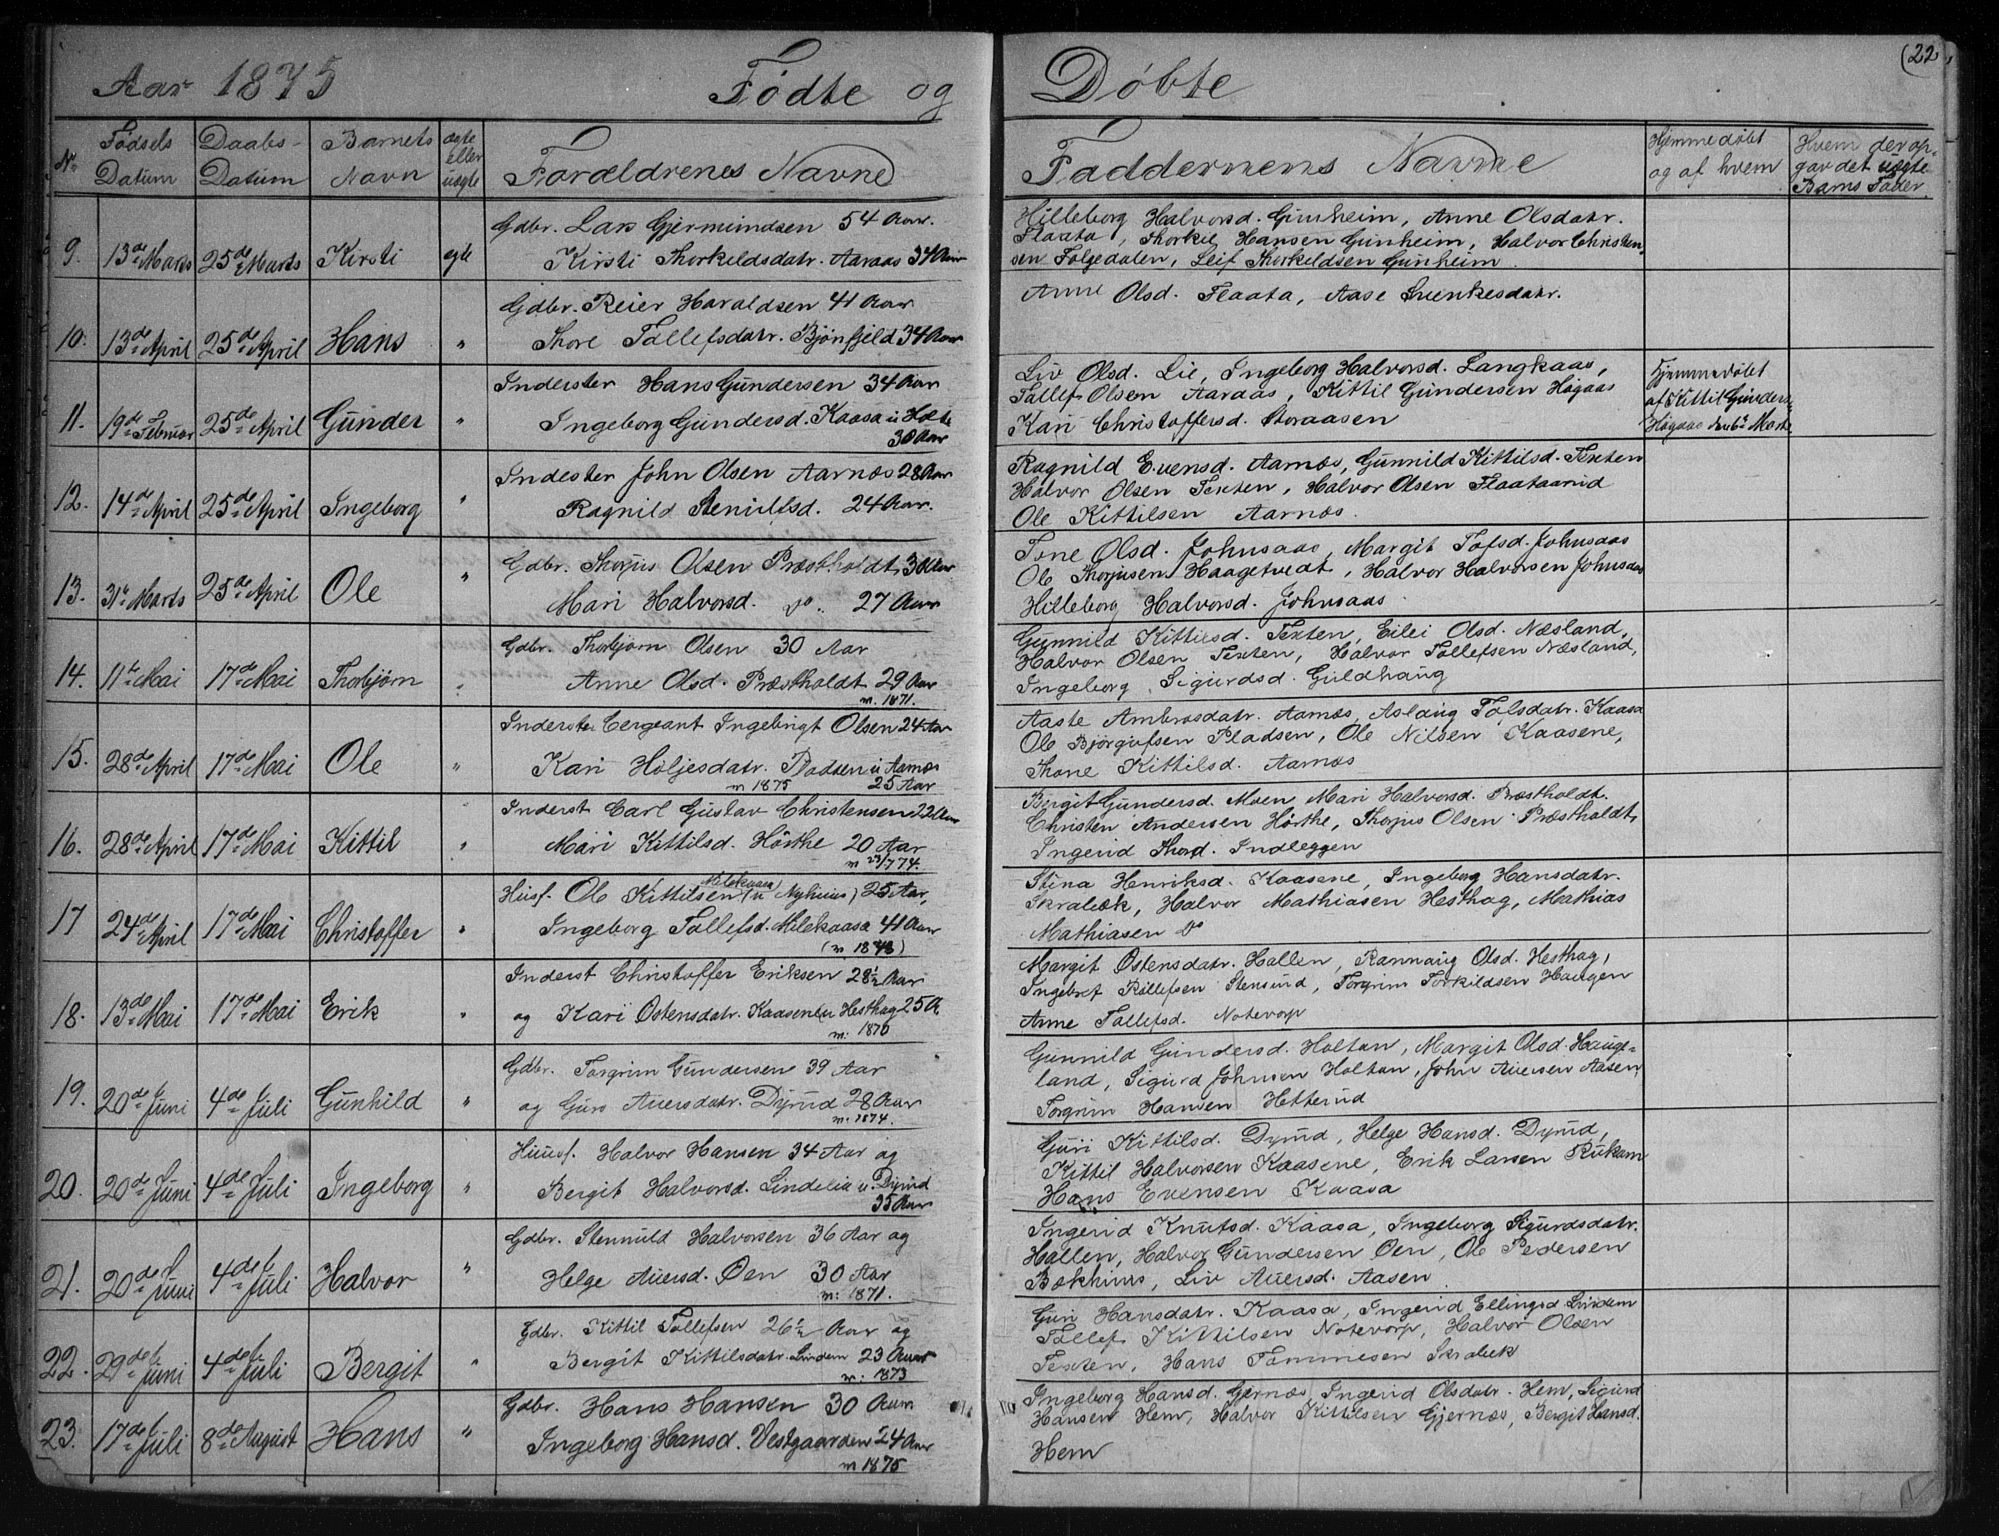 Aar 1875 Fødte og Døbte
(22
No. Fødsels Datum Daabs- Datum Barnets Navn ægte eller uægte Forældrenes Navne Faddernens Navne Hjemmedøbt og af hvem Hvem der op- gav det uægte Barns Fader
9. 13de Marts 25de Marts Kirsti egte
Gdbr. Lars Gjermundsen 54 Aar.
Kirsti Thorkildsdatr. Aaraas 34 Aar
Hilleborg Halvorsd. Gunheim, Anne Olsdatr.
Flaata, Thorkil Hansen Gunheim, Halvor Christen-
sen Følgedalen, Leif Thorkildsen Gunheim.
10. 13de April 25de April Hans "
Gdbr. Reier Haraldsen 41 Aar
Thore Tollefsdatr. Bjønfjeld 34 Aar
Anne Olsd. Flaata, Aase Svenkesdatr.
11. 19de Februar 25de April Gunder "
Inderster Hans Gundersen 34 Aar
Ingeborg Gundersd. Kaasa u Hæte
30 Aar
Liv Olsd. Lie, Ingeborg Halvorsd. Langkaas,
Tallef Olsen Aaraas, Kittil Gundersen Høgaas
Kari Christoffersd. Storaasen
Hjemmedøbt
af Kittil Gunders.
Høgaas den 6te Marts
12. 14de April 25de April Ingeborg "
Indester John Olsen Aarnæs 28 Aar
Ragnild Stenulfsd. 24 Aar.
Ragnild Evensd. Aarnæs, Gunnild Kittilsd. Texten
Halvor Olsen Texten, Halvor Olsen Flaatarud
Ole Kittilsen Aarnæs.
13. 31te Marts 25de April Ole "
Gdbr. Thorjus Olsen Præstholdt 30 Aar
Mari Halvorsd. do. 27 Aar
Tone Olsd. Johnsaas, Margit Tofsd. Johnsaas
Ole Thorjusen Haagetvedt, Halvor Halvorsen Johnsaas
Hilleborg Halvorsd. Johnsaas.
14. 11te Mai 17de Mai Thorbjørn "
Gdbr. Thorbjørn Olsen 30 Aar
Anne Olsd. Præstholdt 29 Aar
m. 1871.
Gunnild Kittilsd. Texten, Eilei Olsd. Næsland,
Halvor Olsen Texten, Halvor Tollefsen Næsland,
Ingeborg Sigurdsd. Guldhaug
15. 28de April 17de Mai Ole "
Inderste Cergeant Ingebrigt Olsen 24 Aar
Kari Høljesdatr. Pladsen u Aarnæs
m 1875 25 Aar
Aaste Ambrosdatr. Aarnæs, Aslaug Tolsdatr. Kaasa
Ole Bjørgufsen Pladsen, Ole Nilsen Kaasene,
Thone Kittilsd. Aarnæs
16. 28de April 17de Mai Kittil "
Inderst Carl Gustav Christensen 22 Aar
Mari Kittilsd. Hørthe 20 Aar
m 23/7 74.
Birgit Gundersd. Moen Mari Halvorsd. Præstholdt.
Christen Andersen Hørthe, Thorjus Olsen Præstholdt,
Ingerid Thord. Indleggen
17 24de April 17de Mai Christoffer "
Husf. Ole Kittilsen Milekaasa (u Nyhuus) 25 Aar,
Ingeborg Tollefsd. Milekaasa 41 Aar
(m. 1873)
Stina Henriksd. Kaasene, Ingeborg Hansdatr.
Skrabæk, Halvor Mathiasen Hesthag, Mathias
Mathiasen do
18. 13de Mai 17de Mai Erik "
Inderst Christoffer Eriksen 28½ Aar
og Kari Østensdatr. Kaasene (u Hesthag 25 A.
m: 1870
Margit Østensdatr. Hallen, Rannaug Olsd. Hesthag,
Ingebret Rollefsen Stensrud, Torgrim Torkildsen Haugen
Anne Tollefsd. Notevarp
19. 20de Juni 4de Juli Gunhild "
Gdbr. Torgrim Gundersen 39 Aar
og Guro Auersdatr. Dyrud 28 Aar
m. 1874.
Gunnild Gundersd. Holtan, Margit Olsd. Hauge-
land, Sigurd Johnsen Holtan, John Auersen Aasen,
Torgrim Hansen Hetterud
20. 20de Juni 4de Juli Ingeborg "
Huusf. Halvor Hansen 34 Aar og
Bergit Halvorsd. Lindelia u. Dyrud
35 Aar
Guri Kittilsd. Dyrud, Helge Hansd. Dyrud,
Kittil Halvorsen Kaasene, Erik Larsen Rukam
Hans Evensen Kaasa
21. 20de Juni 4de Juli Halvor "
Gdbr. Stennuld Halvorsen 36 Aar og
Helge Auersd. Øen 30 Aar
m: 1871.
Ingerid Knutsd. Kaasa, Ingeborg Sigurdsdatr.
Hallen, Halvor Gundersen Øen, Ole Pedersen
Bækhuus, Liv Auersd. Aasen
22. 29de Juni 4de Juli Bergit "
Gdbr. Kittil Tollefsen 26½ Aar og
Bergit Kittilsdatr. Lindem 23 Aar
m: 1873
Guri Hansdatr. Kaasa, Ingerid Ellingsd Lindem
Tollef Kittilsen Notevarp, Halvor Olsen
Texten, Hans Tommesen Skrabek
23. 17de Juli 8de August Hans "
Gdbr. Hans Hansen 30 Aar
Ingeborg Hansd. Vestgaarden 24 Aar
m 1875
Ingeborg Hansd. Gjernæs, Ingerid Olsdatr. Hem, Sigurd
Hansen Hem, Halvor Kittilsen Gjernæs, Bergit Hansd.
Hem